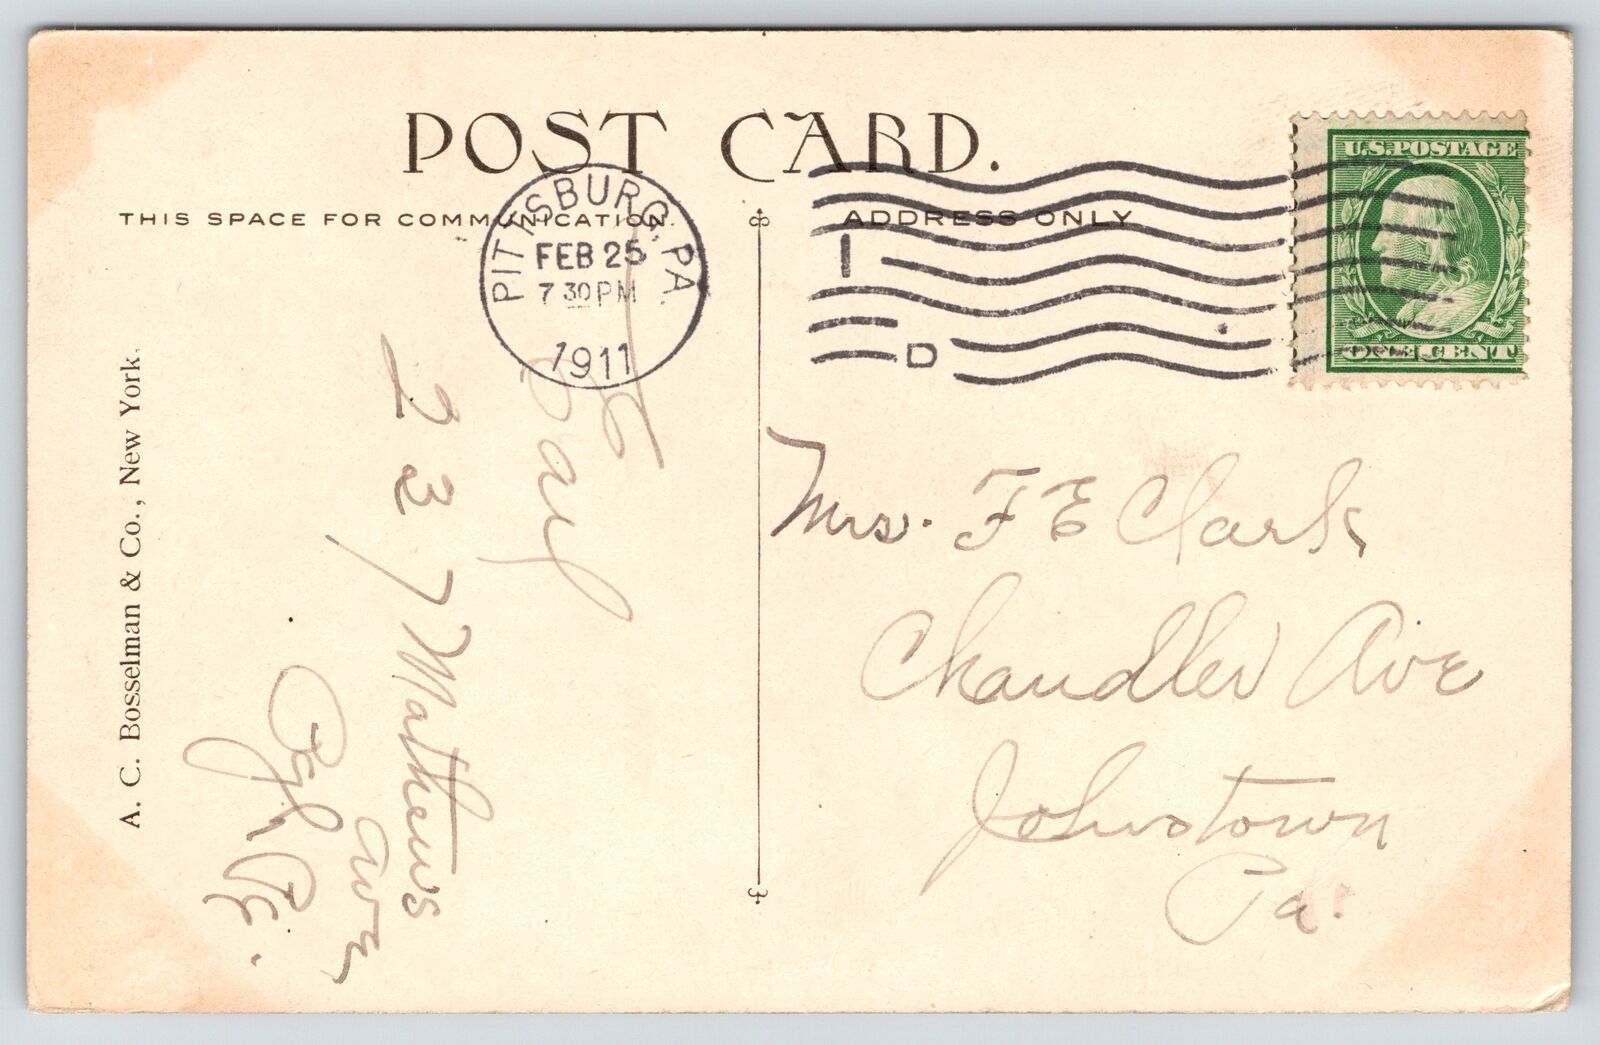 POST CARD.
THIS SPACE FOR COMMUNICATION.
ADDRESS ONLY
PITTSBURG, PA.
FEB 25
7 30 PM
1911
I
D
U.S. POSTAGE
ONE CENT
A. C. Bosselman & Co., New York.
Mrs. F E Clark
Chandler Ave
Johnstown
Pa.
237 Mathews
ave